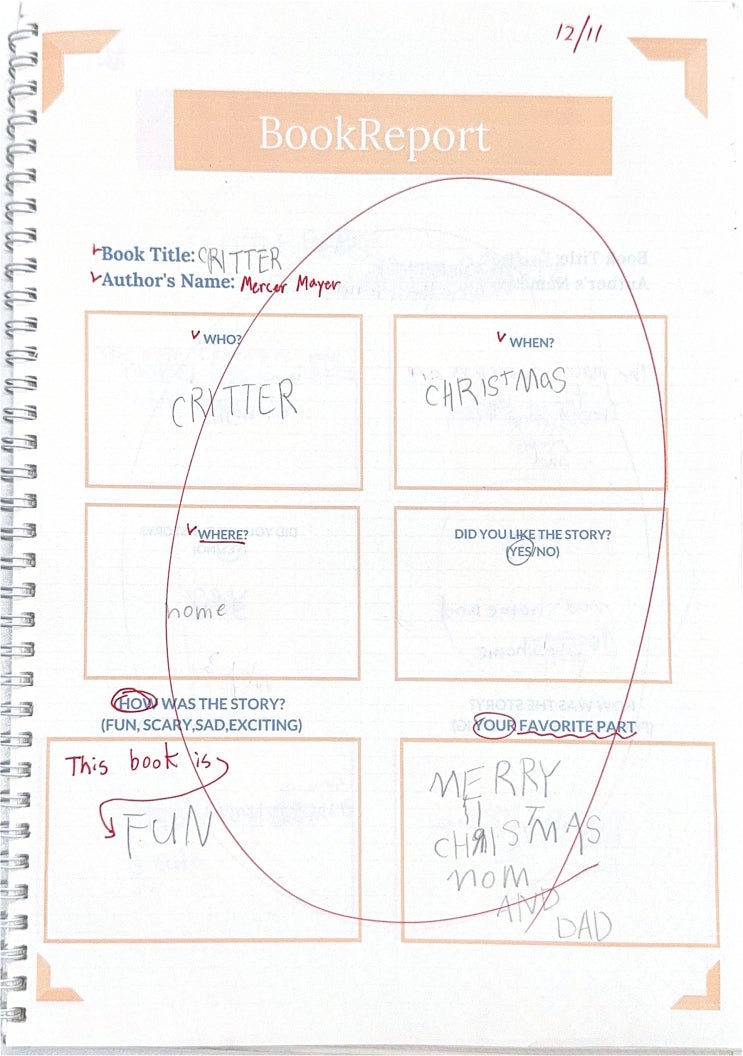 12/11
BookReport
Book Title: CRITTER
Author's Name: Mercer Mayer
WHO?
CRITTER
WHEN?
CHRISTMAS
WHERE?
home
DID YOU LIKE THE STORY?
(YES/NO)
HOW WAS THE STORY?
(FUN, SCARY,SAD,EXCITING)
This book is
FUN
YOUR FAVORITE PART
MERRY
CHRISTMAS
MOM
AND
DAD